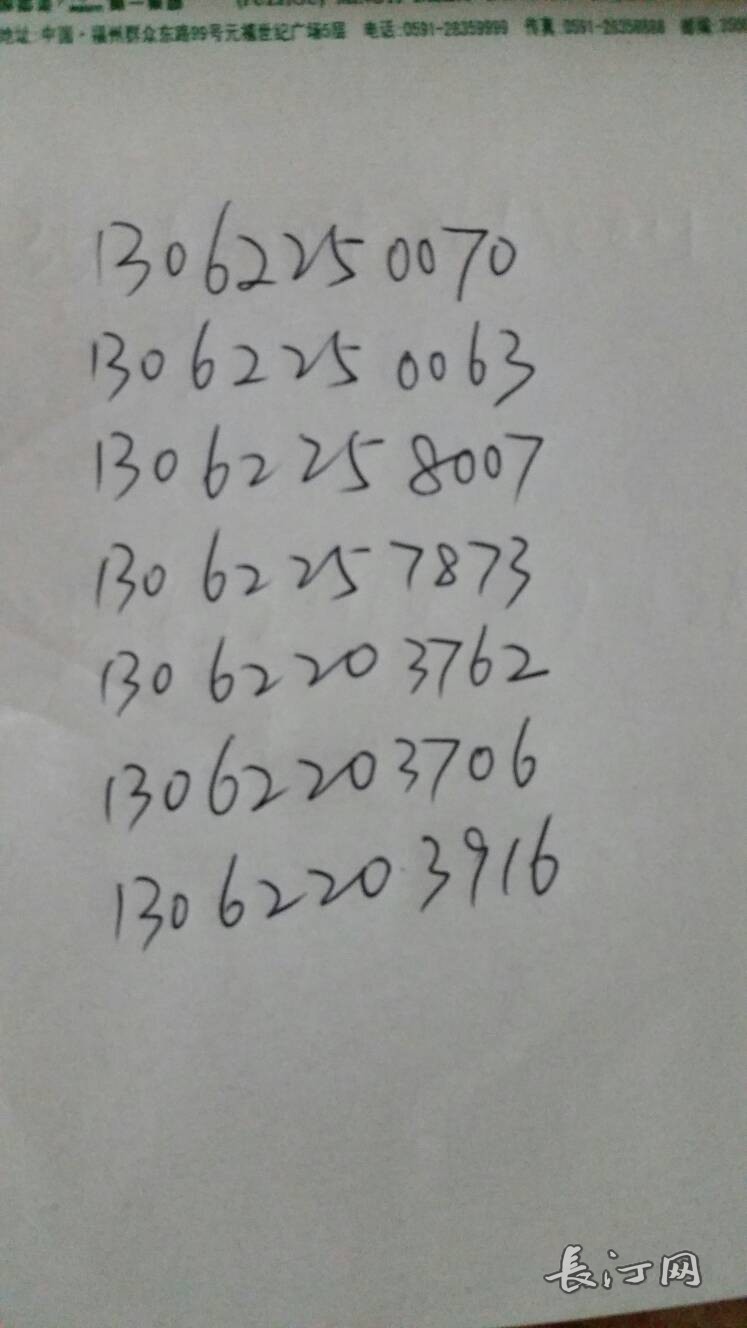 地址:中国·福州群众东路99号元福世纪广场5层 电话:0591-28359999 传真:0591-28358888 邮编:
13062250070
13062250063
13062258007
13062257873
13062203762
13062203706
13062203916
長汀网